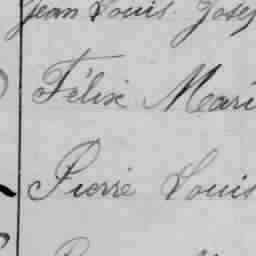 Jean Louis Josep
Félix Mari
Pierre Louis